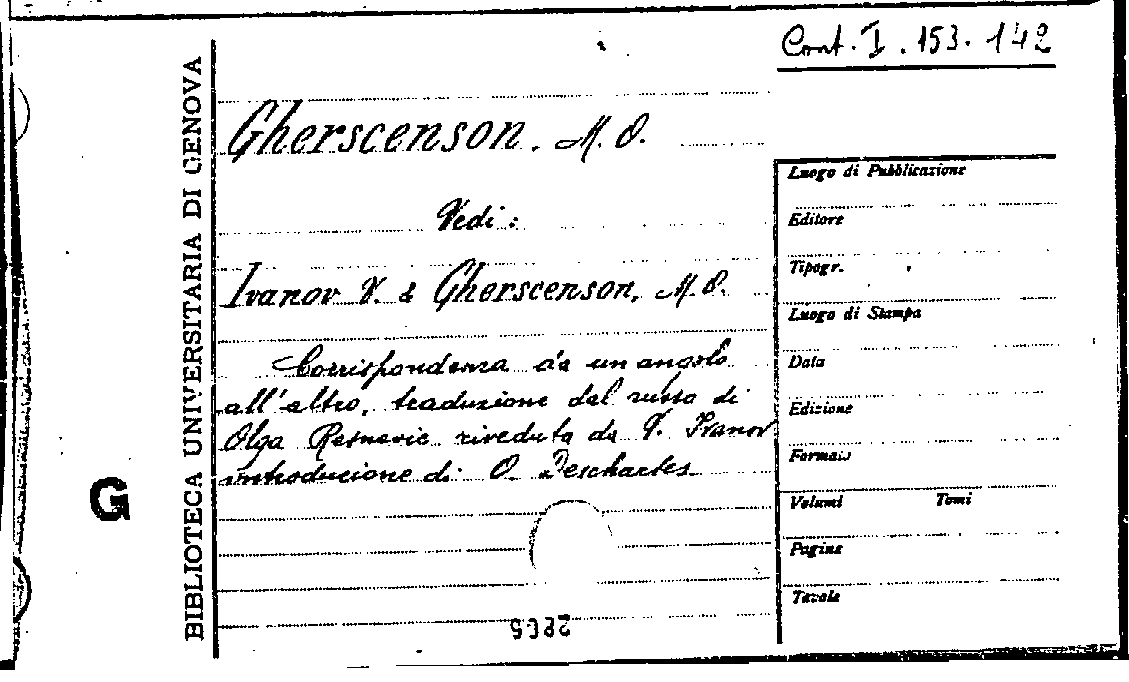 Cont. I. 153. 142
BIBLIOTECA UNIVERSITARIA DI GENOVA
G
Gherscenson. M. O.
Vedi:
Ivanov V. & Gherscenson, M. O.
Corrispondenza da un angolo
all'altro, traduzione dal russo di
Olga Resnevic riveduta da V. Ivanov
introduzione di O. Deschartes
Luogo di Pubblicazione
Editore
Tipogr.
Luogo di Stampa
Data
Edizione
Formato
Volumi Tomi
Pagine
Tavole